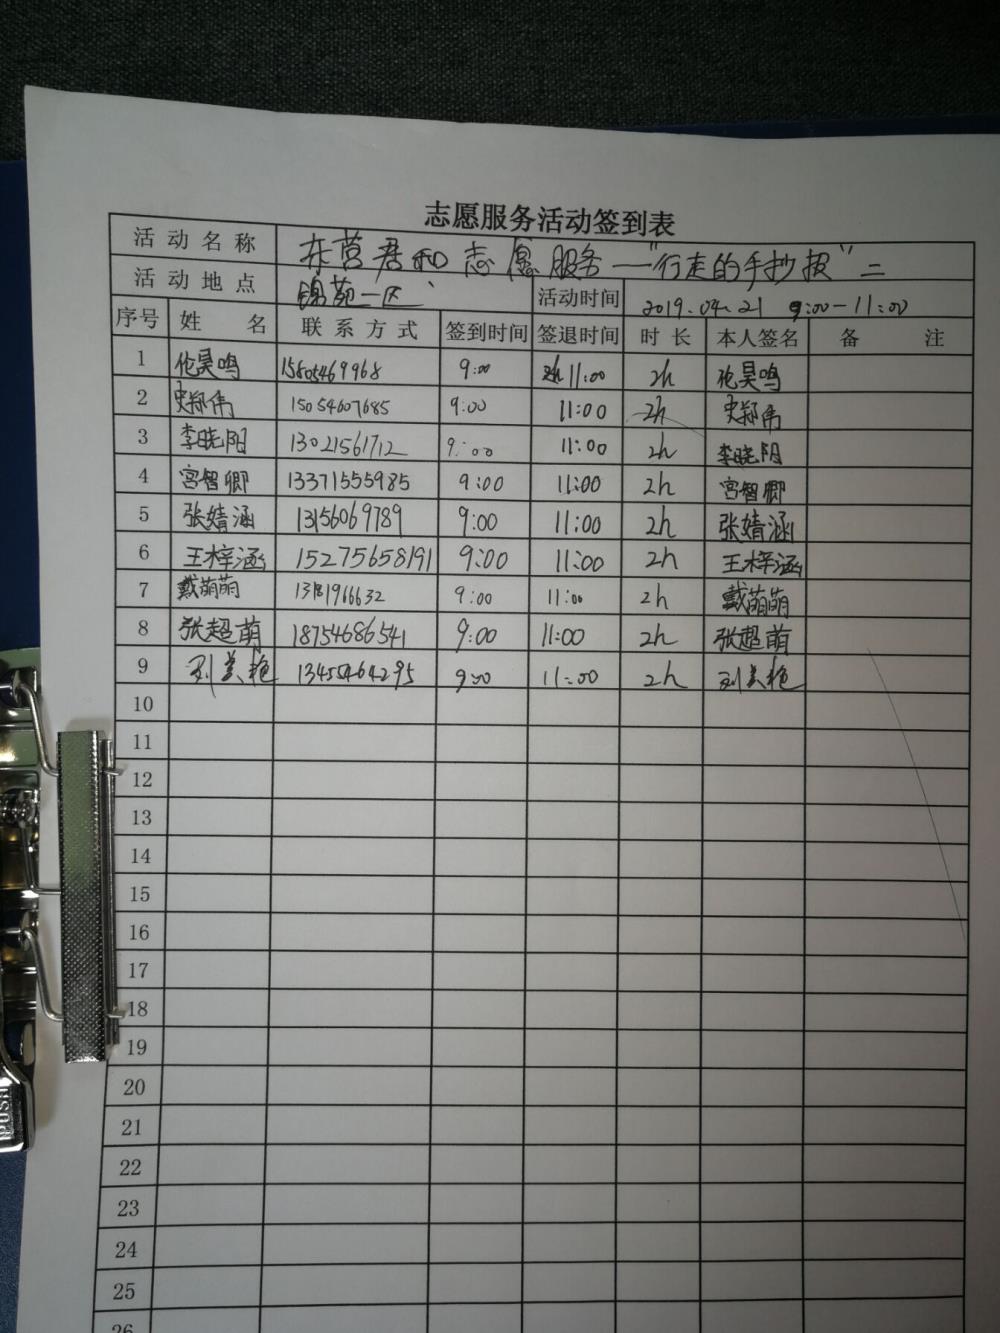 志愿服务活动签到表
活动名称 东营君和志愿服务——"行走的手抄报"二
活动地点 锦苑一区 活动时间 2019.04.21 9:00-11:00
序号 姓名 联系方式 签到时间 签退时间 时长 本人签名 备注
1 伦昊鸣 15805469968 9:00 11:00 2h 伦昊鸣
2 史郑伟 15054607685 9:00 11:00 2h 史郑伟
3 李晓阳 13021561712 9:00 11:00 2h 李晓阳
4 宫智卿 13371555985 9:00 11:00 2h 宫智卿
5 张婧涵 13156069789 9:00 11:00 2h 张婧涵
6 王梓涵 15275658191 9:00 11:00 2h 王梓涵
7 戴萌萌 9:00 11:00 2h 戴萌萌
8 张超萌 18754686541 9:00 11:00 2h 张超萌
9 刘美艳 13455464295 9:00 11:00 2h 刘美艳
10
11
12
13
14
15
16
17
18
19
20
21
22
23
24
25
26
PUSH